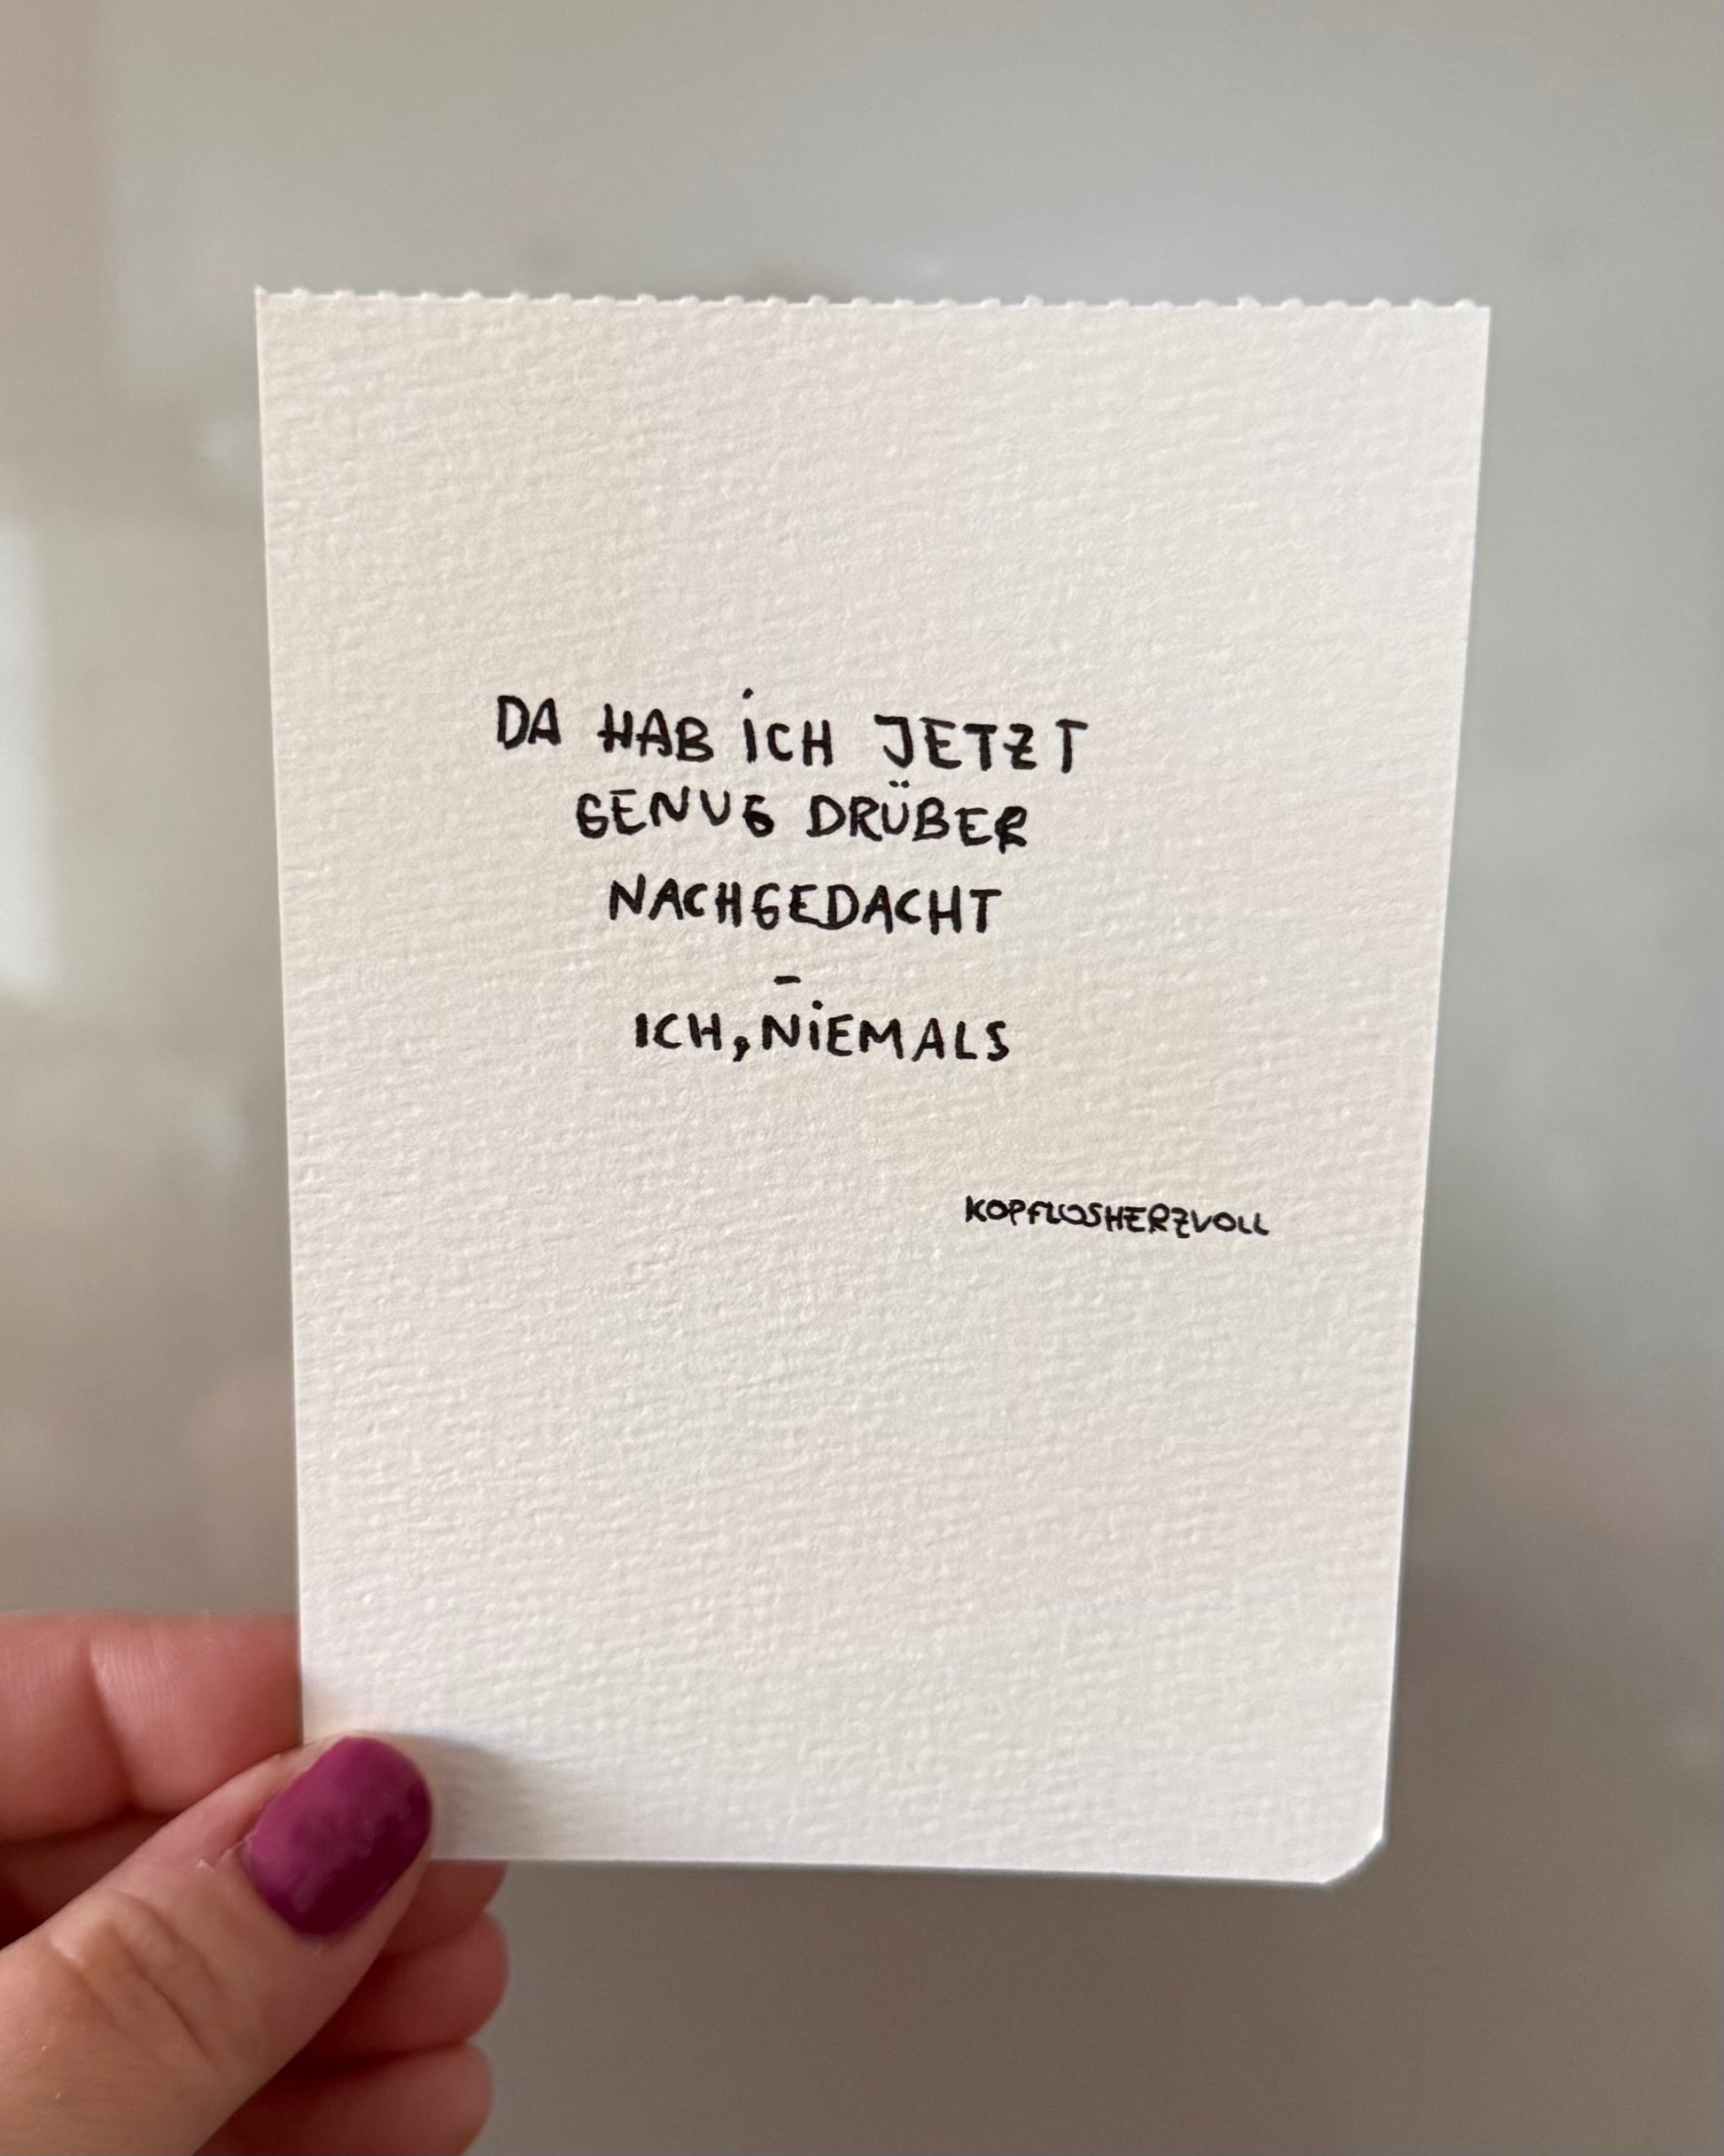 DA HAB ICH JETZT
GENUG DRÜBER
NACHGEDACHT
-
ICH, NIEMALS
KOPFLOSHERZVOLL